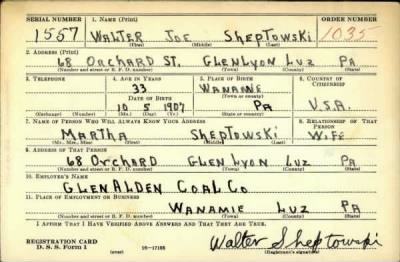 SERIAL NUMBER 1. NAME (Print) ORDER NUMBER
1557 WALTER JOE SHEPTOWSKI 1035
(First) (Middle) (Last)
2. ADDRESS (Print)
68 ORCHARD ST. GLENLYON LUZ PA
(Number and street or R. F. D. number) (Town) (County) (State)
3. TELEPHONE 4. AGE IN YEARS 5. PLACE OF BIRTH 6. COUNTRY OF CITIZENSHIP
33 WANAMIE
DATE OF BIRTH (Town or county)
10 5 1907 PA U.S.A.
(Exchange) (Number) (Mo.) (Day) (Yr.) (State or country)
7. NAME OF PERSON WHO WILL ALWAYS KNOW YOUR ADDRESS 8. RELATIONSHIP OF THAT PERSON
MARTHA SHEPTOWSKI WIFE
(Mr., Mrs., Miss) (First) (Middle) (Last)
9. ADDRESS OF THAT PERSON
68 ORCHARD GLEN LYON LUZ PA
(Number and street or R. F. D. number) (Town) (County) (State)
10. EMPLOYER'S NAME
GLENALDEN COAL CO
11. PLACE OF EMPLOYMENT OR BUSINESS
WANAMIE LUZ PA
(Number and street or R. F. D. number) (Town) (County) (State)
I AFFIRM THAT I HAVE VERIFIED ABOVE ANSWERS AND THAT THEY ARE TRUE.
REGISTRATION CARD
D. S. S. Form 1 (over) 16—17105 Walter Sheptowski
(Registrant's signature)